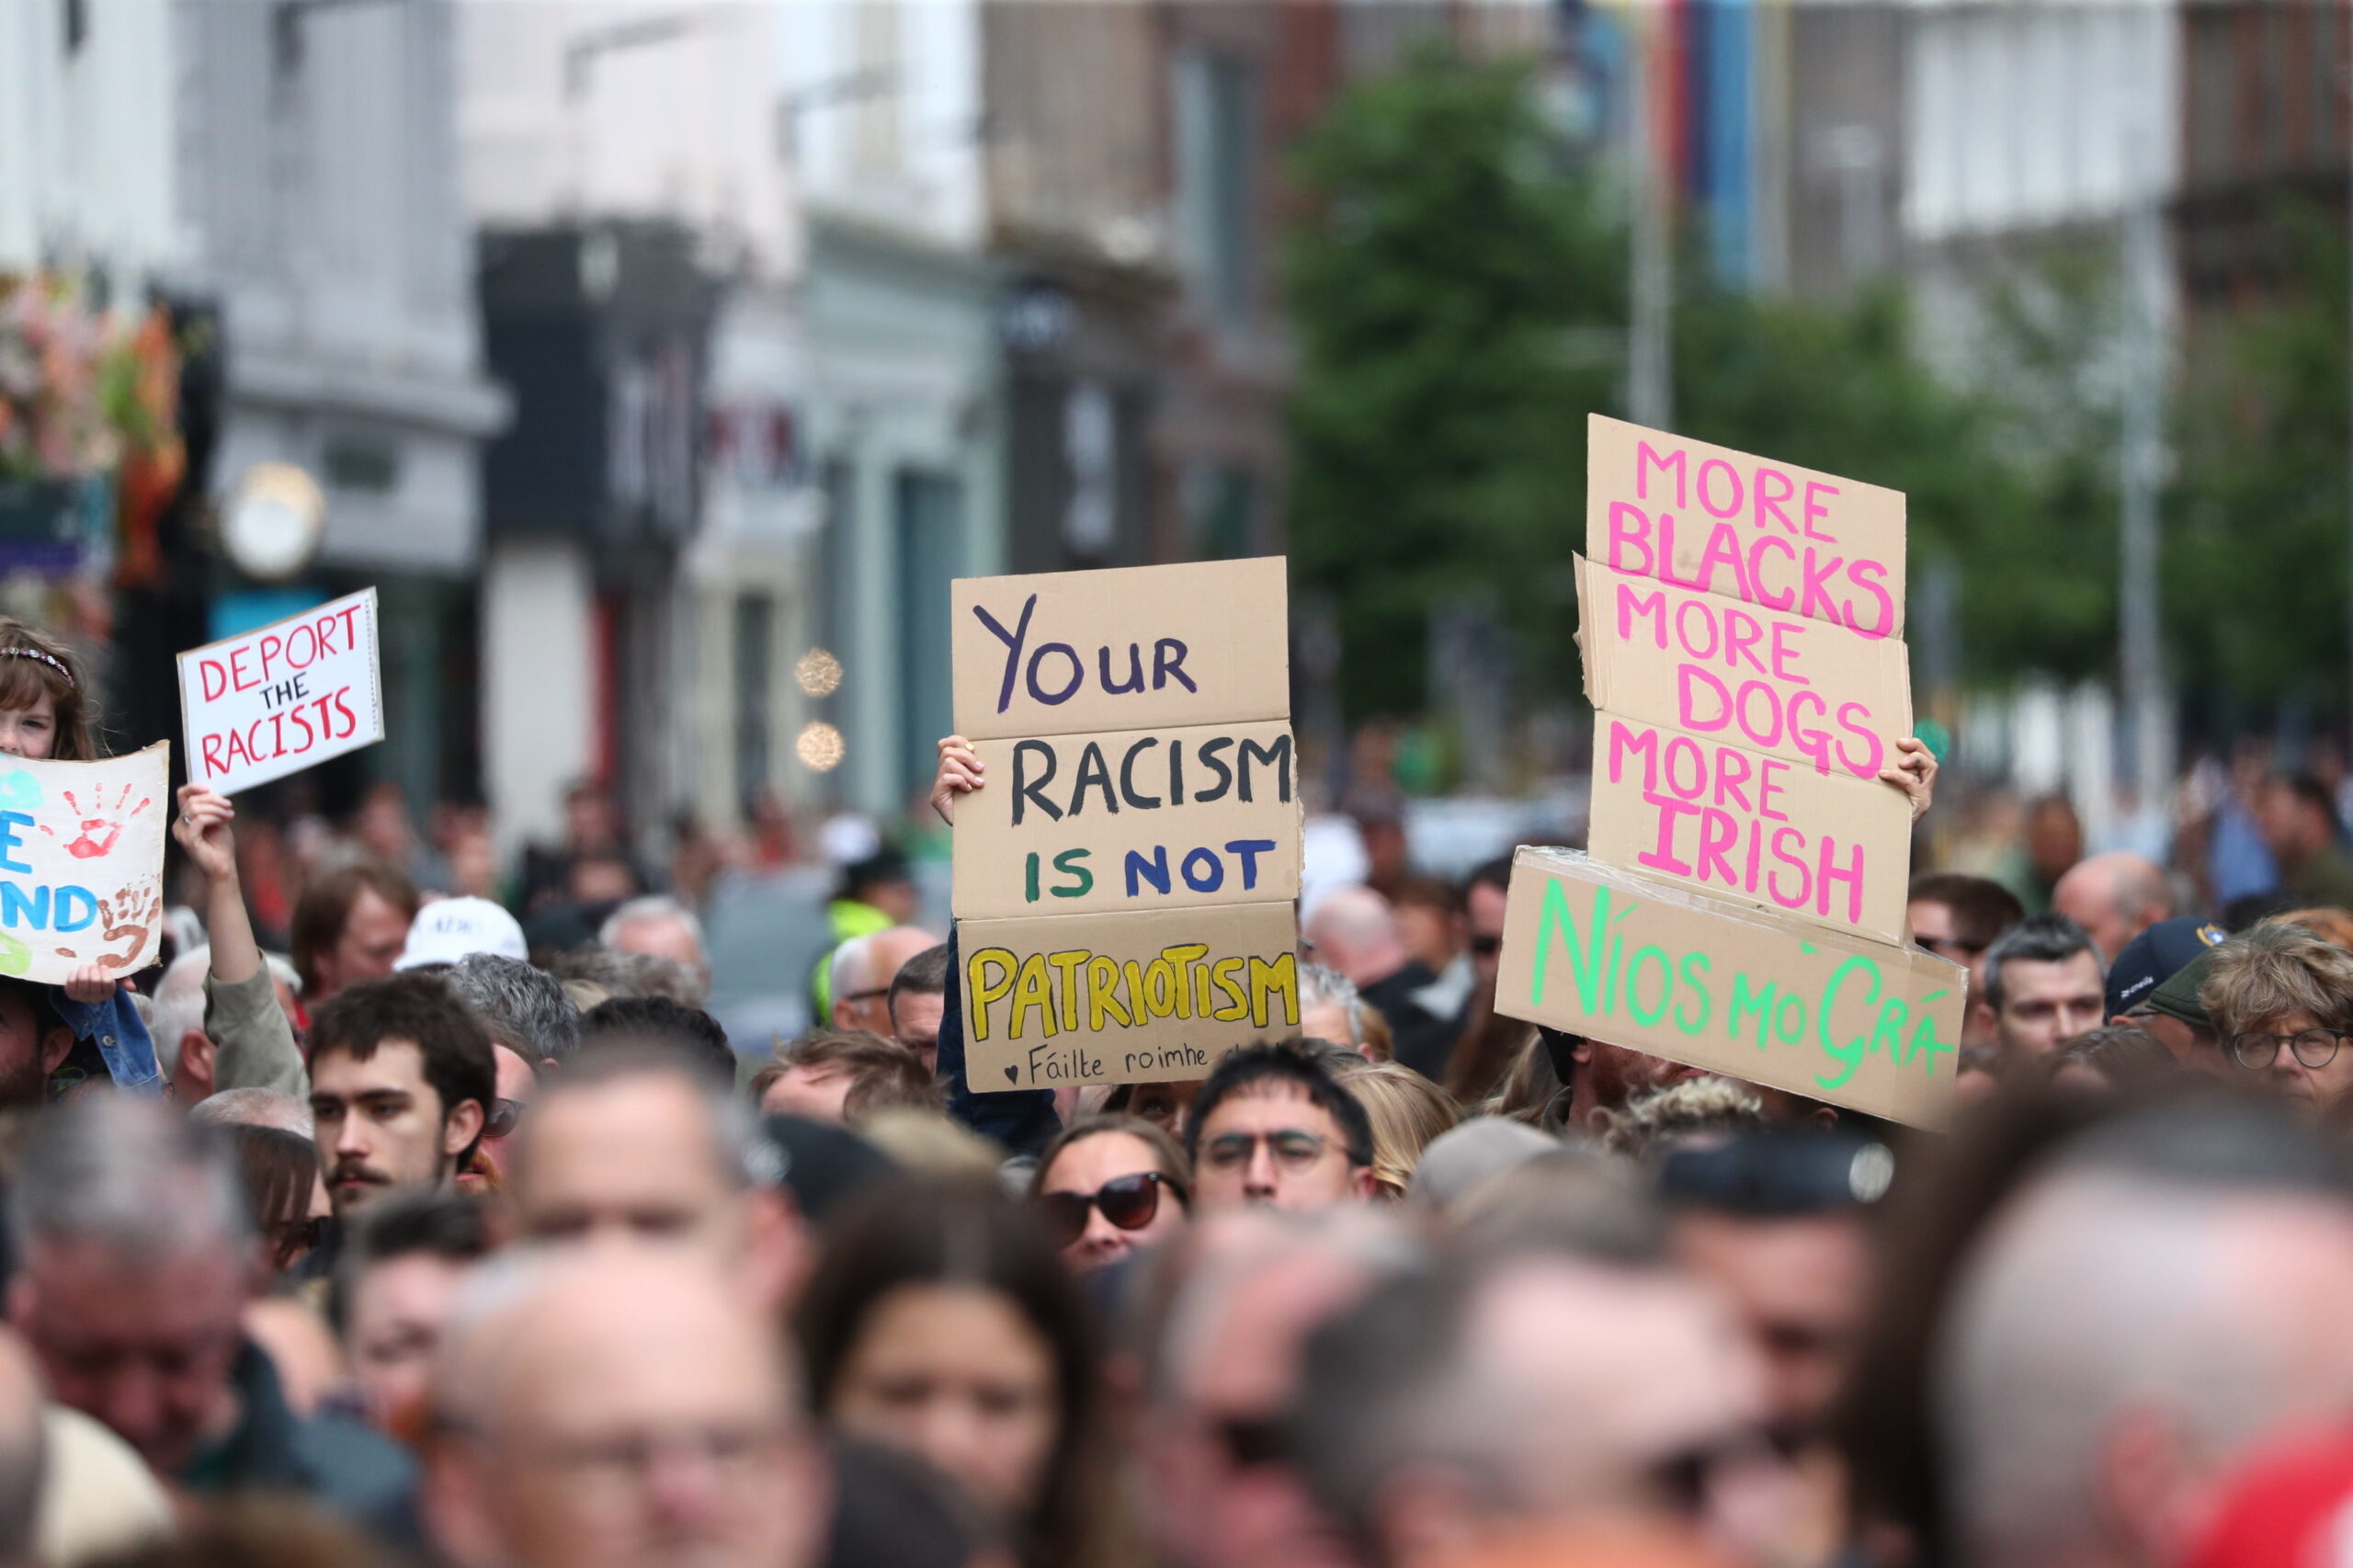 DEPORT
THE
RACISTS
E
ND
YOUR
RACISM
IS NOT
PATRIOTISM
Fáilte roimhe
MORE
BLACKS
MORE
DOGS
MORE
IRISH
Níos mó Grá